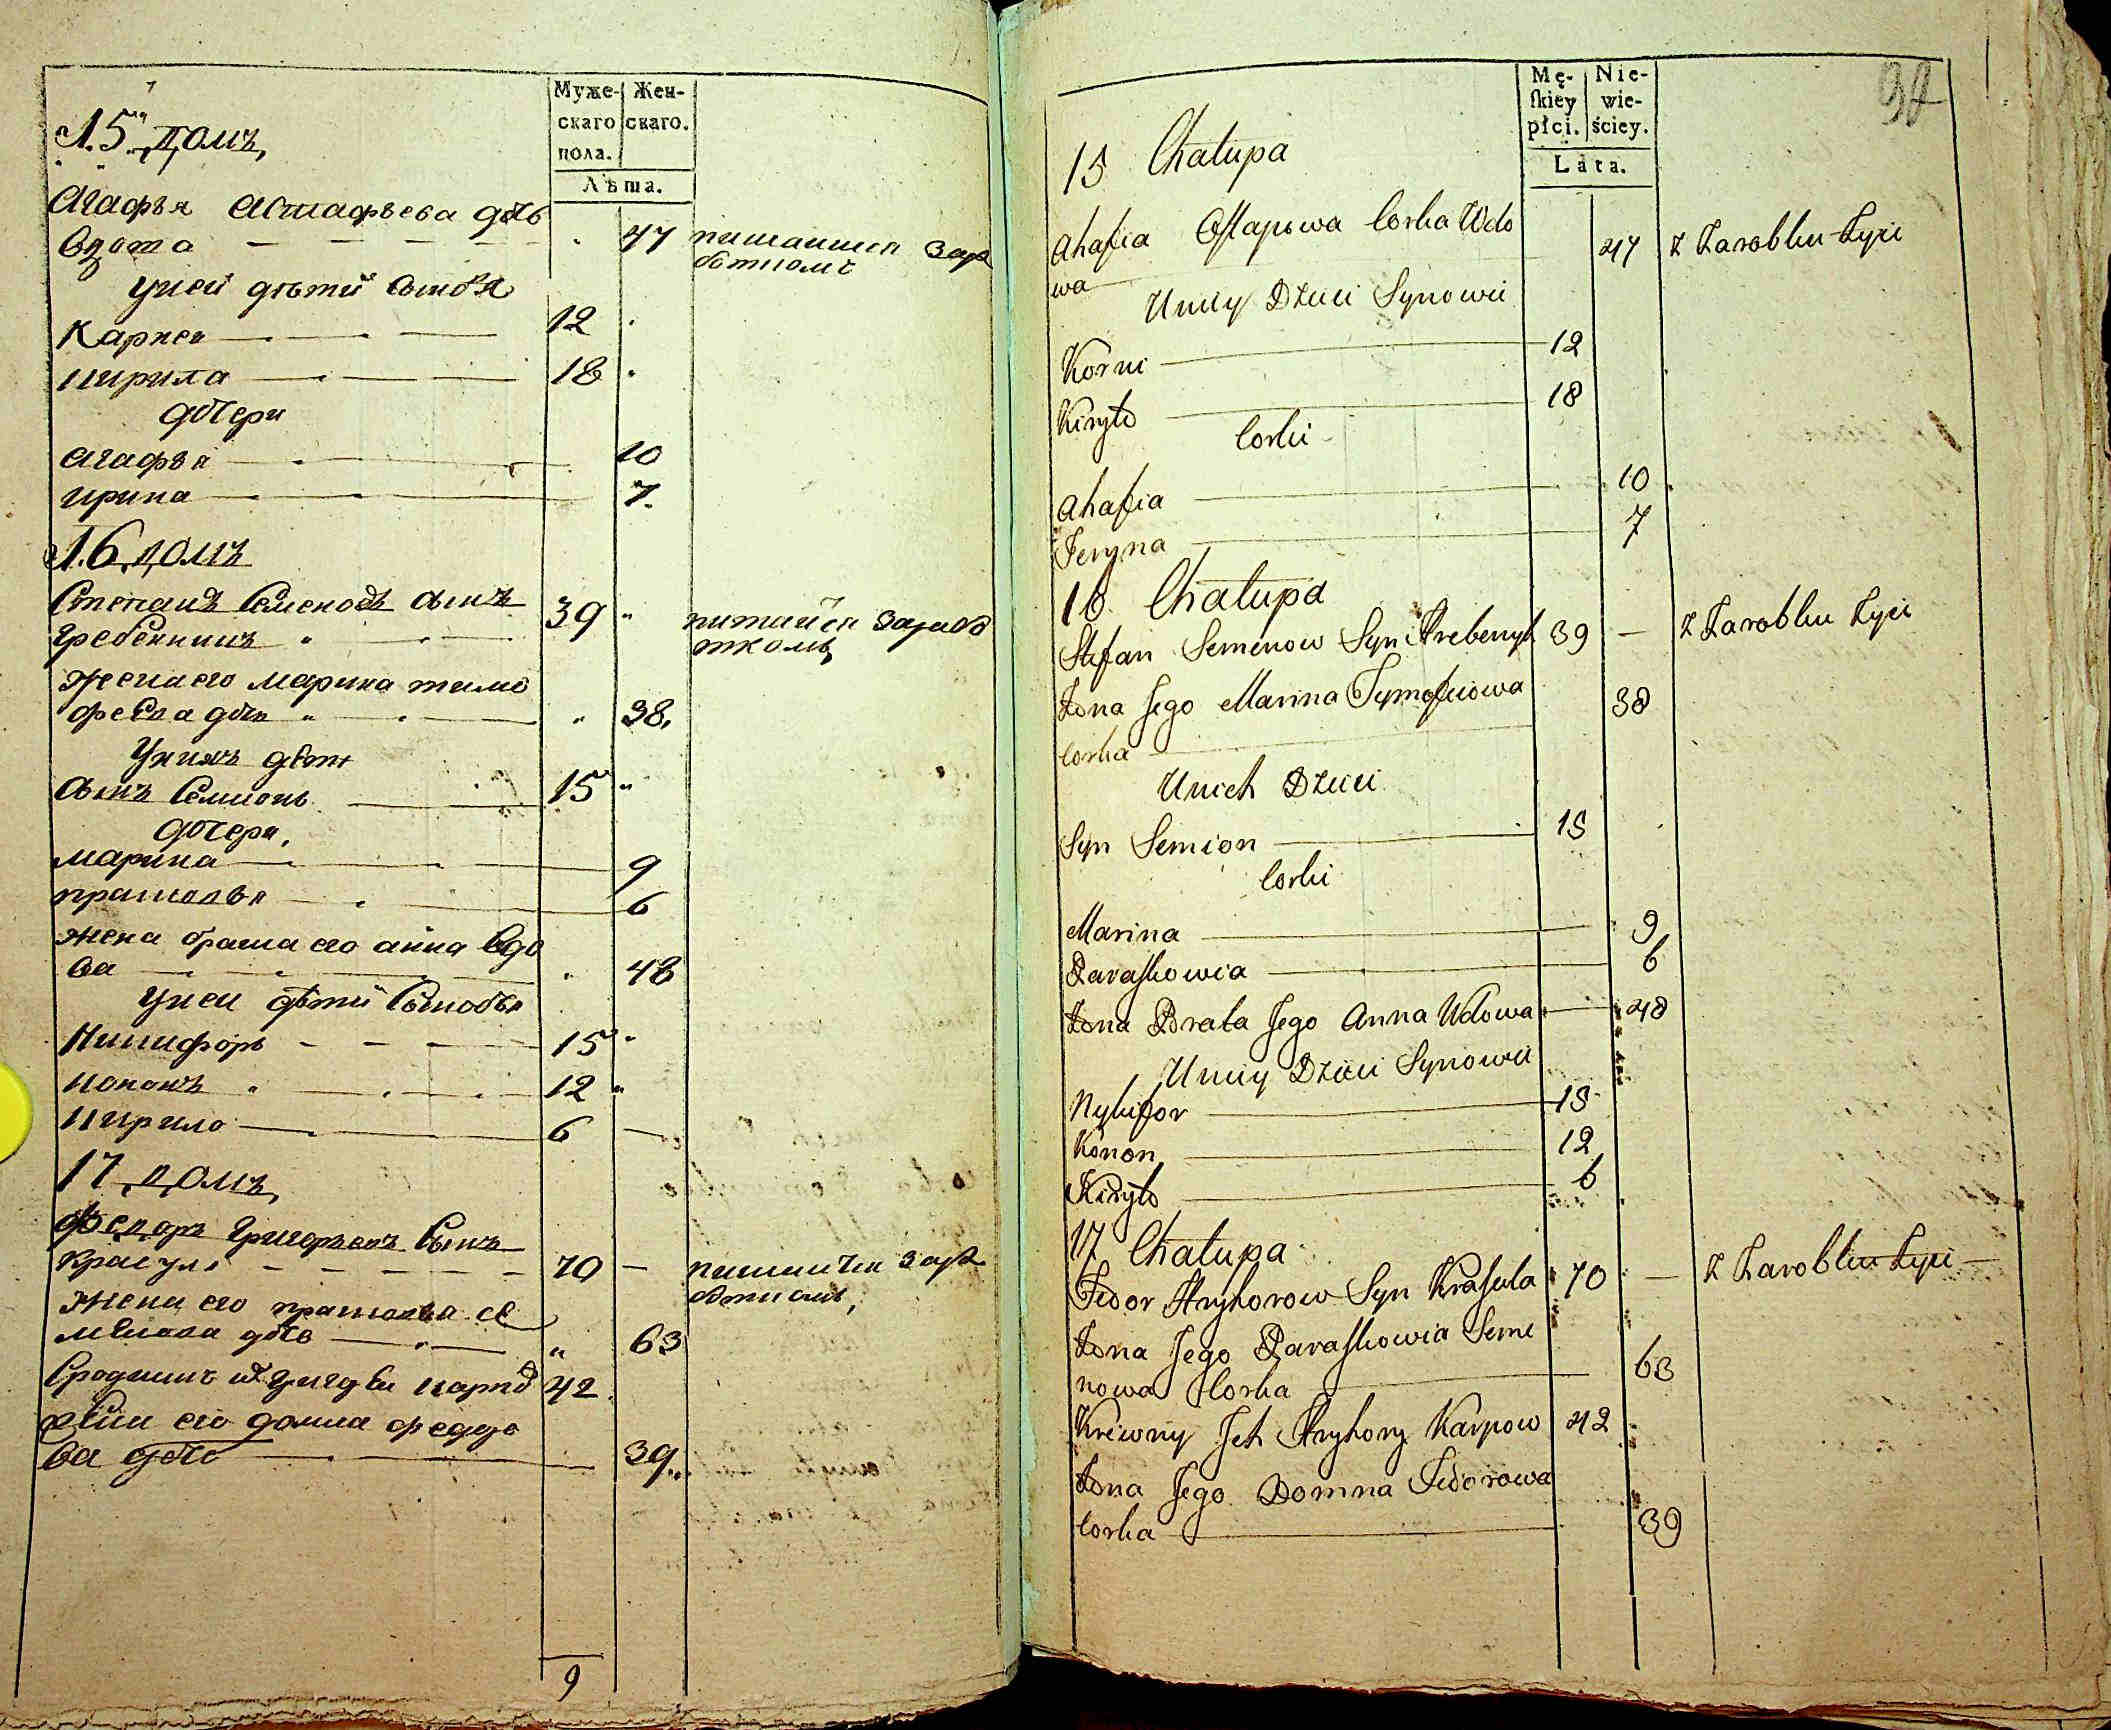 Муже-
скаго
пола.
Жен-
скаго.
Лѣта.
15 домъ
Агафья Астафьева дочь
вдова 47 питаится зара
боткомъ
у ней дѣтей сыновья
Карней 12
Кирила 18
дочери
Агафья 10
Ирина 7
16 домъ
Степанъ Семеновъ сынъ
Гребенникъ 39 питаится зарабо
ткомъ
жена его Марина Тимо
феева дочь 38
у нихъ дети
сынъ Семионъ 15
дочери
Марина 9
Прасковья 6
жена брата его Анна вдо
ва 48
у ней дѣтей сыновья
Никифоръ 15
Кононъ 12
Кирило 6
17 домъ
Федоръ Григорьевъ сынъ
Красуля 70 питаится зара
боткомъ
жена его Прасковья Се
менова дочь 63
Сродникъ их Григорѣи Карпов 42
жена его Домна Федоро
ва дочь 39
9
Mę-
skiey
płci.
Nie-
wie-
ściey.
Lata.
15 Chałupa
Ahafia Ostapowa Corka Wdo
wa 47 z Zarobku Żyie
U niey Dzieci Synowie
Korni 12
Kiryło 18
Corki
Ahafia 10
Jeryna 7
16 Chałupa
Stefan Semenow Syn Hrebenyk 39 — z Zarobku Żyie
Żona Jego Marina Tymofiiowa
Corka 38
U nich Dzieci
Syn Semion 15
Corki
Marina 9
Paraskowia 6
Żona Brata Jego Anna Wdowa 48
U niey Dzieci Synowie
Nykifor 15
Konon 12
Kiryło 6
17 Chałupa
Fedor Hryhorow Syn Krasula 70 — z Zarobku Żyie
Żona Jego Paraskowia Seme
nowa Corka 63
Krewny Jch Hryhory Karpow 42
Żona Jego Domna Fedorowa
Corka 39